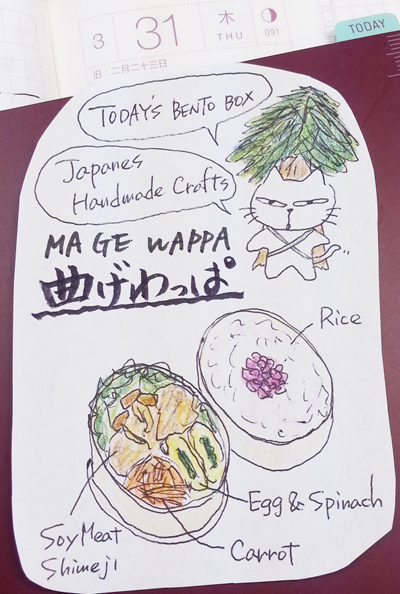 3
31
木
THU
091
TODAY
旧：二月二十三日
TODAY'S BENTO BOX
Japanes
Handmade Crafts
MAGE WAPPA
曲げわっぱ
Rice
Egg & Spinach
Carrot
Soy Meat
Shimeji